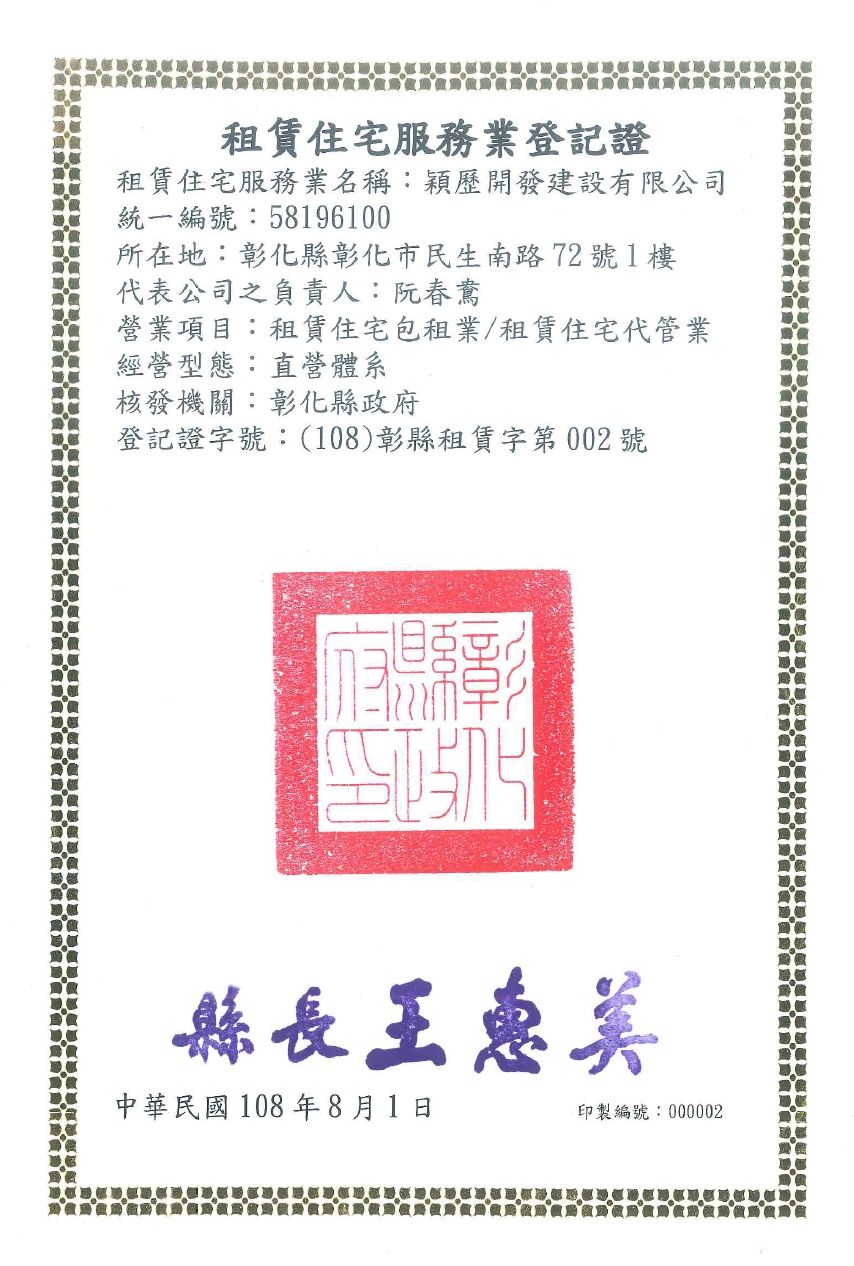 租賃住宅服務業登記證
租賃住宅服務業名稱：穎歷開發建設有限公司
統一編號：58196100
所在地：彰化縣彰化市民生南路72號1樓
代表公司之負責人：阮春鶱
營業項目：租賃住宅包租業/租賃住宅代管業
經營型態：直營體系
核發機關：彰化縣政府
登記證字號：(108)彰縣租賃字第002號
彰化
縣政
府印
縣長王惠美
中華民國108年8月1日
印製編號：000002